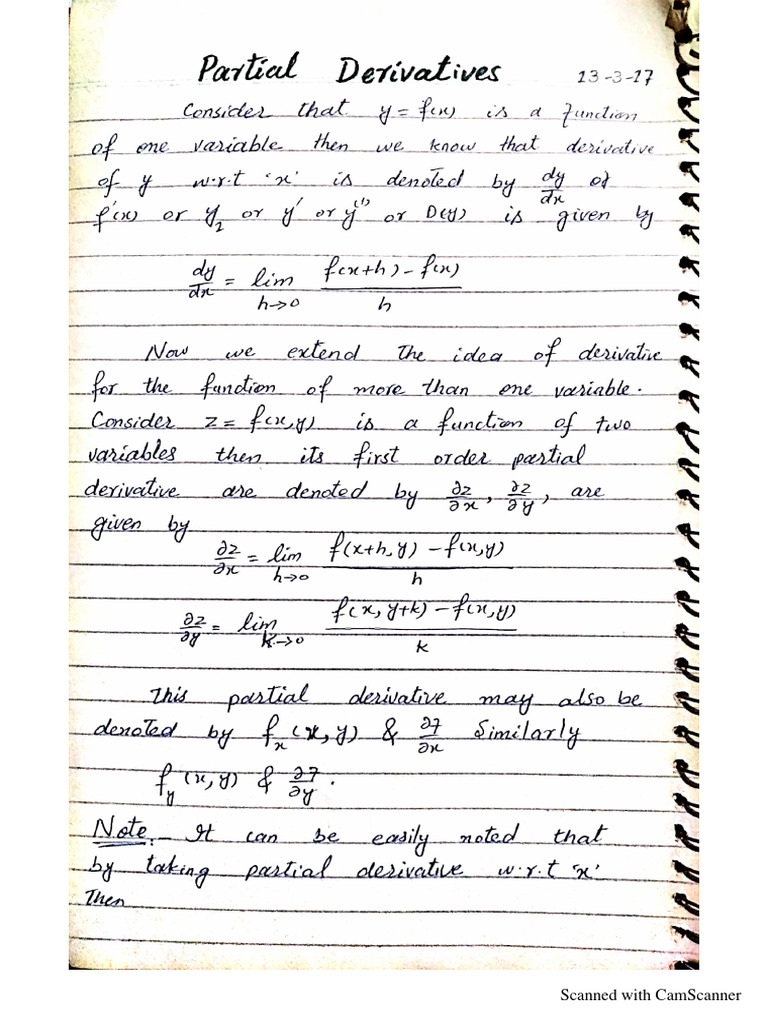 Partial Derivatives 13-3-17
Consider that y = f(x) is a function
of one variable then we know that derivative
of y w.r.t 'x' is denoted by dy/dx of
f'(x) or y₂ or y' or y⁽¹⁾ or D(y) is given by
dy/dx = lim h→0 f(x+h) - f(x) / h
Now we extend the idea of derivative
for the function of more than one variable.
Consider z = f(x,y) is a function of two
variables then its first order partial
derivative are denoted by ∂z/∂x, ∂z/∂y, are
given by
∂z/∂x = lim h→0 f(x+h, y) - f(x,y) / h
∂z/∂y = lim k→0 f(x, y+k) - f(x,y) / k
This partial derivative may also be
denoted by fₓ(x,y) & ∂f/∂x Similarly
f_y(x,y) & ∂f/∂y.
Note:- It can be easily noted that
by taking partial derivative w.r.t 'x'
Then
Scanned with CamScanner